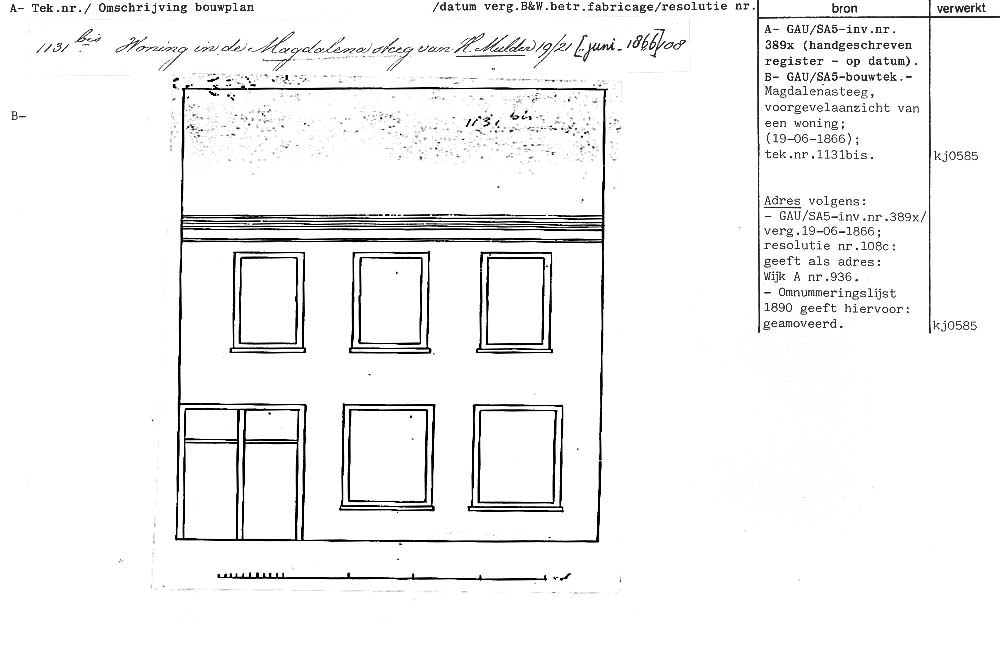 A- Tek.nr./ Omschrijving bouwplan /datum verg.B&W.betr.fabricage/resolutie nr.
1131 bis Woning in de Magdalena steeg van H. Mulder 19/21 [juni 1866] 108
B-
1131 bis
bron
A- GAU/SA5-inv.nr.
389x (handgeschreven
register - op datum).
B- GAU/SA5-bouwtek.-
Magdalenasteeg,
voorgevelaanzicht van
een woning;
(19-06-1866);
tek.nr.1131bis.
Adres volgens:
- GAU/SA5-inv.nr.389x/
verg.19-06-1866;
resolutie nr.108c:
geeft als adres:
Wijk A nr.936.
- Omnummeringslijst
1890 geeft hiervoor:
geamoveerd.
verwerkt
kj0585
kj0585